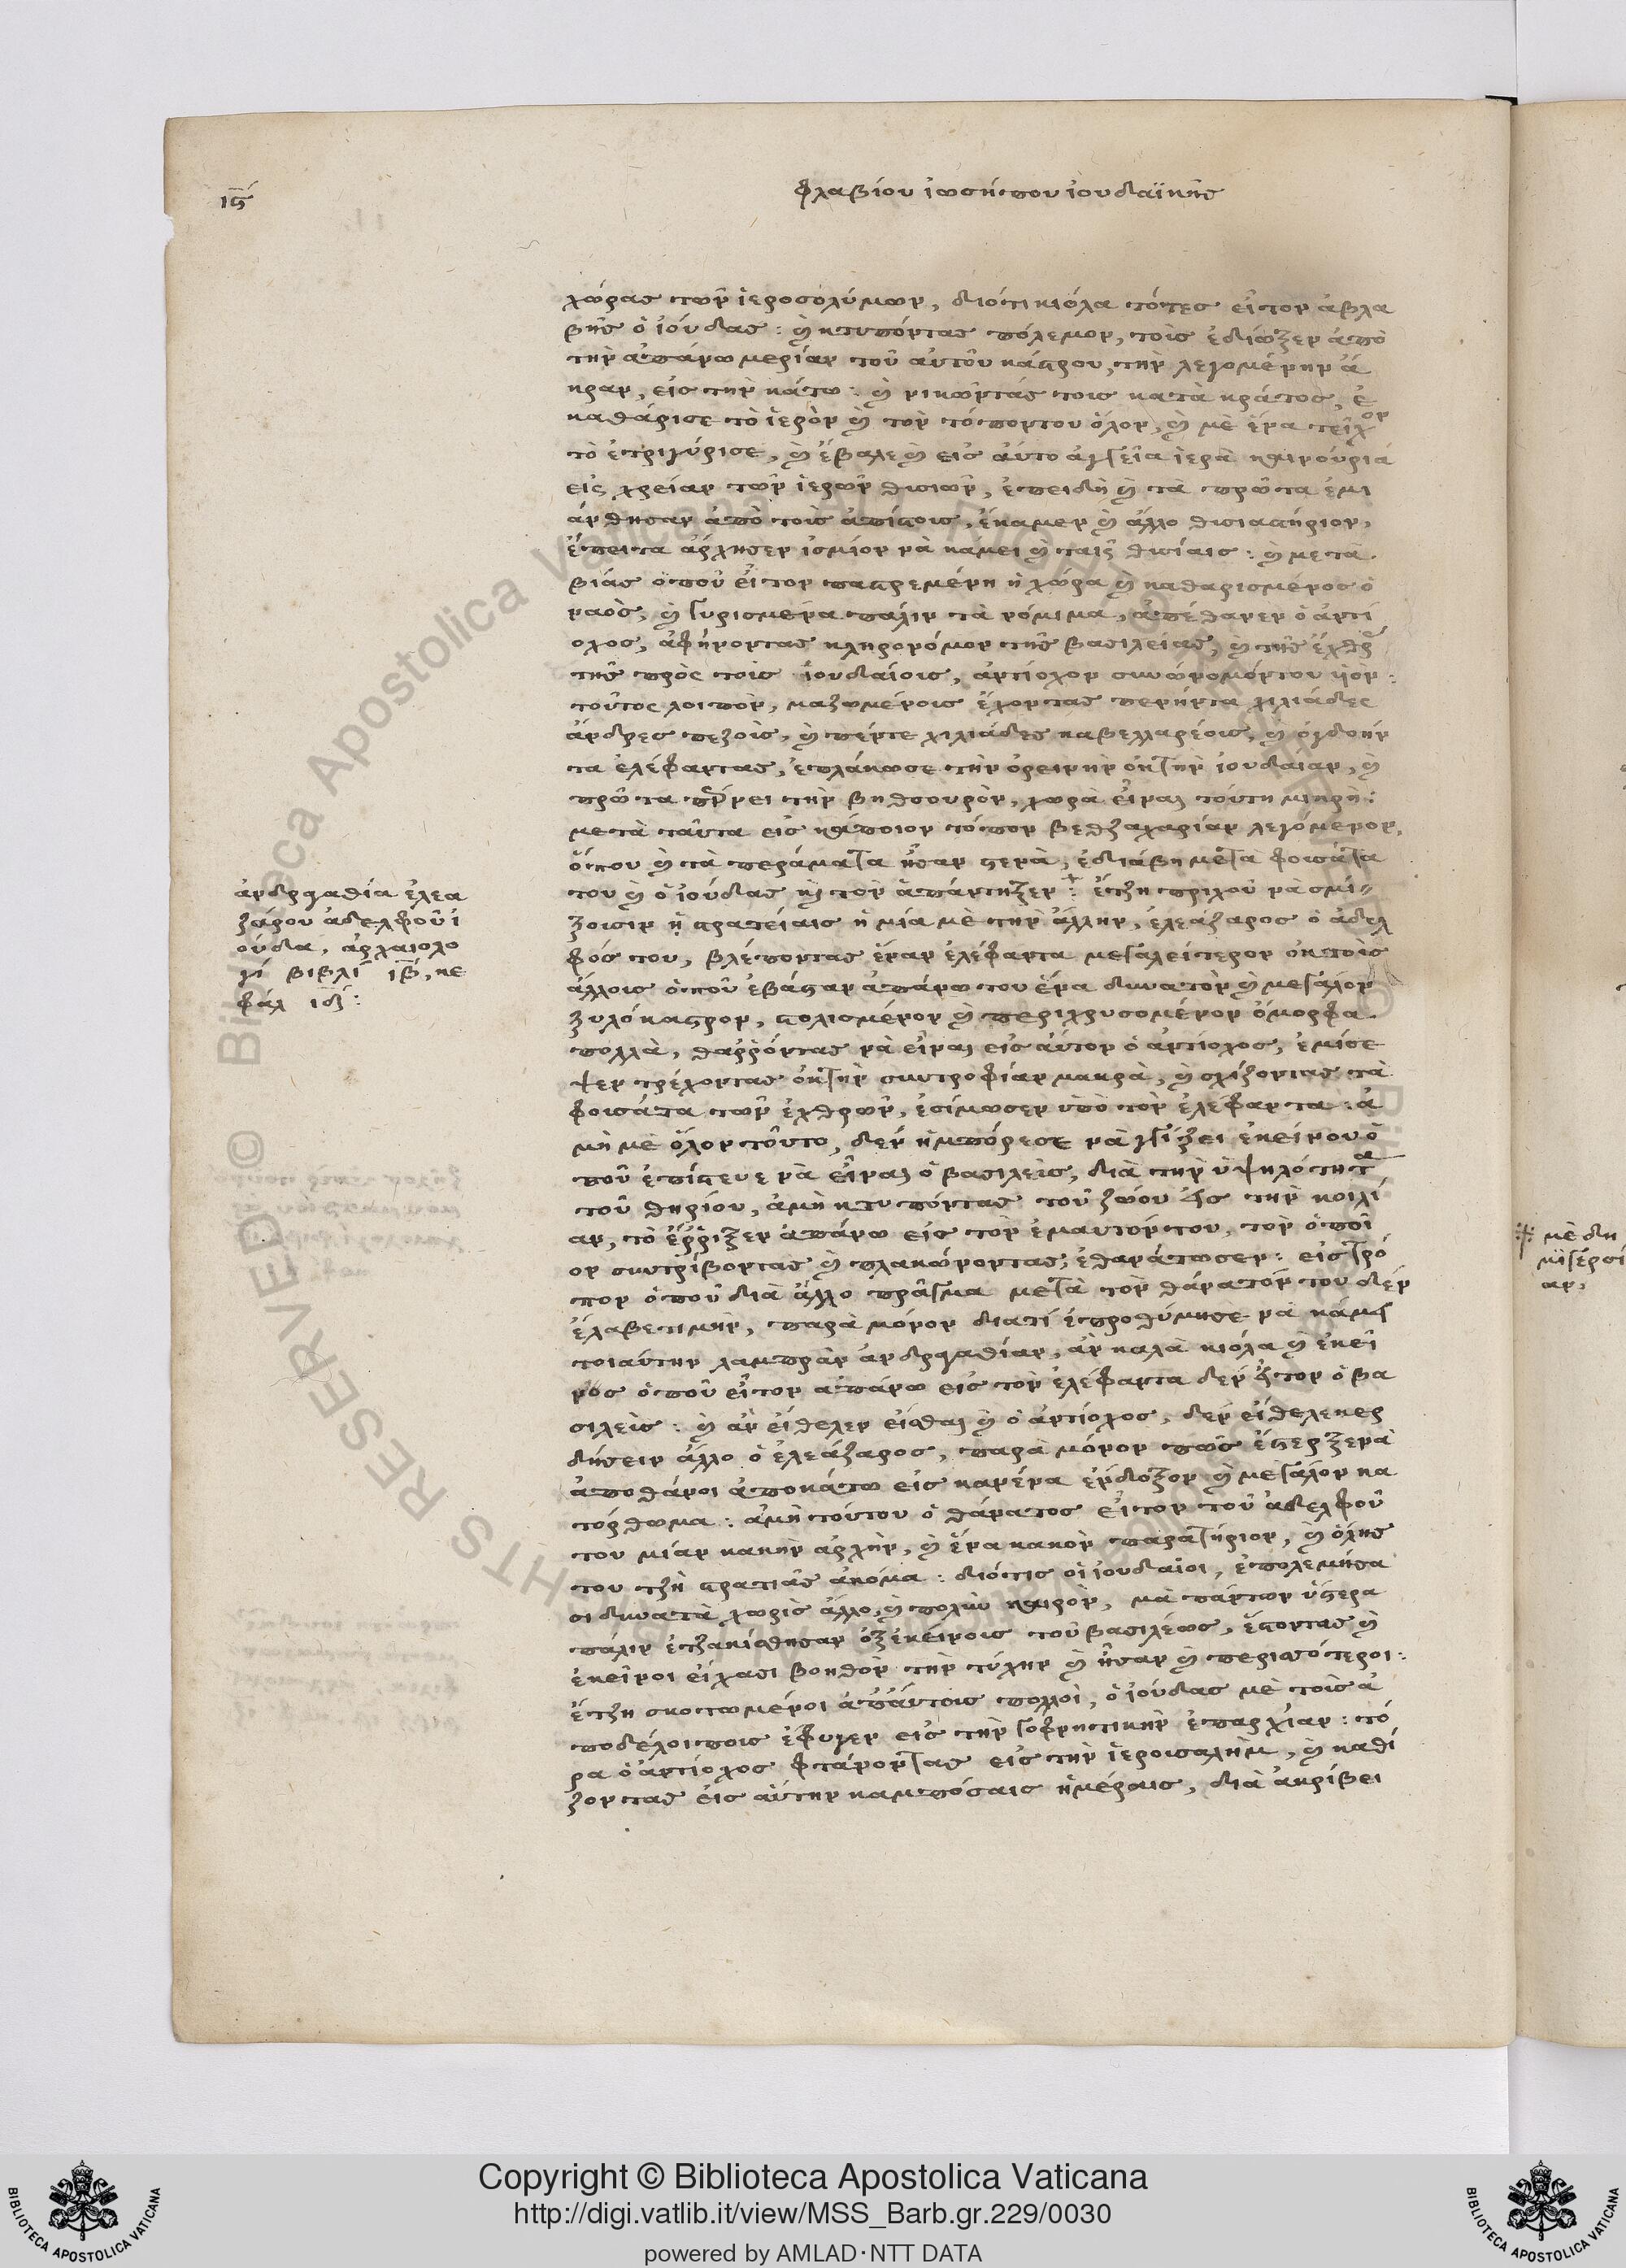 ιϛ
φλαβίου ἰωσήπου ἰουδαϊκῆς
χώρας τῶν ἱεροσολύμων, διότι κιόλα τότες εἶτον ἀβλα
βὴς ὁ ἰούδας: καὶ κτυπόντας πόλεμον, τοὶς ἐδίωξεν ἀπὸ
τὴν ἀπάνω μεριὰν τοῦ αὐτοῦ κάστρου, τὴν λεγομένην ἄ
κραν, εἰς τὴν κάτω: καὶ νικῶντάς τοις κατὰ κράτος, ἐ
καθάρισε τὸ ἱερὸν καὶ τὸν τόπον του ὅλον, καὶ μὲ ἕνα τεῖχον
τὸ ἐτριγύρισε, καὶ ἔβαλε καὶ εἰς αὐτὸ ἀγγεῖα ἱερὰ καινούρια
εἰς χρείαν τῶν ἱερῶν θυσιῶν, ἐπειδὴ καὶ τὰ πρῶτα ἐμι
άνθησαν ἀπὸ τοὶς ἀπίστοις, ἔκαμεν καὶ ἄλλο θυσιαστήριον,
ἔπειτα ἄρχησεν ὀσμίον νὰ κάμει καὶ ταῖς θυσίαις: καὶ μετὰ
βιάς ὁποῦ εἶτον παστρεμένη ἡ χώρα καὶ καθαρισμένος ὁ
ναὸς, καὶ γυρισμένα πάλιν τὰ νόμιμα, ἀπέθανεν ὁ ἀντί
οχος, ἀφήνοντας κληρονόμον τῆς βασιλείας, καὶ τῆς ἔχθρ
της πρὸς τοὶς ἰουδαίοις, ἀντίοχον συνωνομόντου ὑιόν:
τοῦτος λοιπὸν, μαζωμένοις ἔχοντας πενήντα χιλιάδες
ἄνδρες πεζοὶς, καὶ πέντε χιλιάδες καβελλαρέοις, καὶ ὀγδοήν
τα ἐλέφαντας, ἐπλάκωσε τὴν ὀρεινὴν ἐκ τὴν ἰουδαίαν, καὶ
πρῶτα πέρνει τὴν βηθσουρὸν, χωρὰ εἶναι τούτη μικρή:
μετὰ ταῦτα εἰς κάποιον τόπον βεθζαχαρίαν λεγόμενον,
ὅπου καὶ τὰ περάματα ἦσαν στενὰ, ἐδιάβη μετὰ φουσάτα
του καὶ ὁ ἰούδας καὶ τὸν ἀπάντηξεν: ἔτζη πριχοῦ νὰ σμί
ξουσιν ἡ στρατείαις ἡ μία μὲ τὴν ἄλλην, ἐλεάζαρος ὁ ἀδελ
φός του, βλέποντας ἕναν ἐλέφαντα μεγαλείτερον ἐκ τοὶς
ἄλλοις ὁποῦ ἐβάσταν ἀπάνω του ἕνα δυνατὸν καὶ μεγάλον
ξυλόκαστρον, στολισμένον καὶ περιχρυσομένον ὄμορφα
πολλὰ, θαῤῥόντας νὰ εἶναι εἰς αὐτὸν ὁ ἀντίοχος, ἐμίσε
ψεν τρέχοντας ἐκ τὴν συντροφίαν μακρὰ, καὶ σχίζοντας τὰ
φουσάτα τῶν ἐχθρῶν, ἐσίμωσεν ὑπὸ τὸν ἐλέφαντα: ἀ
μὴ μὲ ὅλον τοῦτο, δὲν ἠμπόρεσε νὰ γγίξει ἐκείνου ὁ
ποῦ ἐπίστευε νὰ εἶναι ὁ βασιλεὶς, διὰ τὴν ὑψηλότητα
τοῦ θηρίου, ἀμὴ κτυπόντας τοῦ ζώου εἰς τὴν κοιλί
αν, τὸ ἔῤῥιξεν ἀπάνω εἰς τὸν ἐμαυτόν του, τὸν ὁποῖ
ον συντρίβοντας καὶ πλακώνοντας, ἐθανάτωσεν: εἰς τρό
πον ὁποῦ διὰ ἄλλο πρᾶγμα μετὰ τὸν θάνατόν του δὲν
ἔλαβε τιμὴν, παρὰ μόνον διατί ἐπροθύμησε νὰ κάμει
τοιαύτην λαμπρὰν ἀνδραγαθίαν, ἂν καλὰ κιόλα καὶ ἐκεῖ
νος ὁποῦ εἶτον ἀπάνω εἰς τὸν ἐλέφαντα δὲν εἶτον ὁ βα
σιλεὶς: καὶ ἂν εἴθελεν εἶσθαι καὶ ὁ ἀντίοχος, δὲν εἴθελε κερ
δήσειν ἄλλο ὁ ἐλεάζαρος, παρὰ μόνον πῶς ἔστερξε νὰ
ἀποθάνοι ἀποκάτω εἰς κανένα ἔνδοξον καὶ μεγάλον κα
τόρθωμα: ἀμὴ τούτου ὁ θάνατος εἶτον τοῦ ἀδελφοῦ
του μίαν κακὴν ἀρχὴν, καὶ ἕνα κακὸν παρατήριον, καὶ ὅλης
του τζῆ στρατιᾶς ἀκόμα: διότις οἱ ἰουδαῖοι, ἐπολεμήσα
σι δυνατὰ χωρὶς ἄλλο, καὶ πολὺν καιρὸν, μὰ πάντων ὕστερα
πάλιν ἐτζακίσθησαν ἐξ ἐκείνοις τοῦ βασιλέως, ἔστοντας καὶ
ἐκεῖνοι εἴχασι βοηθὸν τὴν τύχην καὶ ἦσαν καὶ περισσότεροι:
ἔτζη σκοτωμένοι ἀπ' αὐτοὶς πολλοὶ, ὁ ἰούδας μὲ τοὶς ἀ
ποδέλοιποις ἔφυγεν εἰς τὴν γοφνητικὴν ἐπαρχίαν: τό
ρα ὁ ἀντίοχος φτάνοντας εἰς τὴν ἱερουσαλὴμ, καὶ καθί
ζοντας εἰς αὐτὴν καμπόσαις ἡμέραις, διὰ ἀκρίβει
ἀνδραγαθία ἐλεα
ζάρου ἀδελφοῦ ἰ
ούδα, ἀρχαιολο
γί βιβλί ιβ, κε
φάλ ιδ:
μὲ δη
μιγερσί
αν,
Copyright © Biblioteca Apostolica Vaticana
http://digi.vatlib.it/view/MSS_Barb.gr.229/0030
powered by AMLAD·NTT DATA
BIBLIOTECA APOSTOLICA VATICANA
BIBLIOTECA APOSTOLICA VATICANA